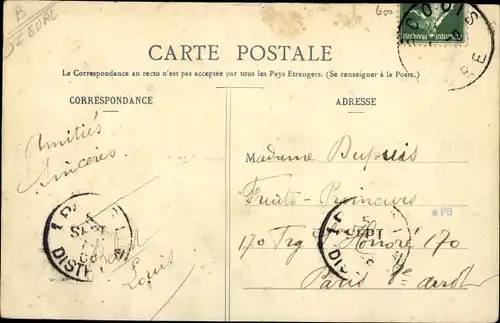 B
EURE
600
CARTE POSTALE
La Correspondance au recto n'est pas acceptée par tous les Pays Etrangers. (Se renseigner à la Poste.)
CORRESPONDANCE
ADRESSE
Amitiés
Sincères
Louis
Madame Dupuis
Fruits - Primeurs
170 St Honoré 170
Paris
PB
SEPT
DISTR
SEPT
DIS